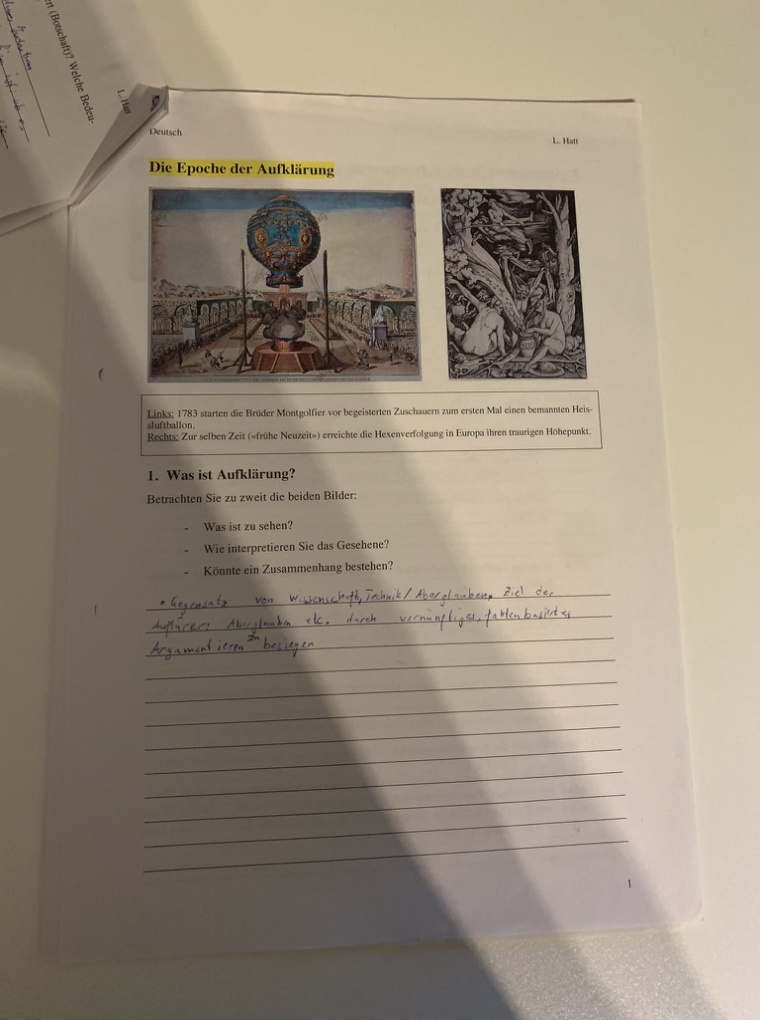 ert (Botschaft)? Welche Bedeu-
L. Hatt
Deutsch
L. Hatt
Die Epoche der Aufklärung
Links: 1783 starten die Brüder Montgolfier vor begeisterten Zuschauern zum ersten Mal einen bemannten Heis-
sluftballon.
Rechts: Zur selben Zeit («frühe Neuzeit») erreichte die Hexenverfolgung in Europa ihren traurigen Höhepunkt.
1. Was ist Aufklärung?
Betrachten Sie zu zweit die beiden Bilder:
- Was ist zu sehen?
- Wie interpretieren Sie das Gesehene?
- Könnte ein Zusammenhang bestehen?
• Gegensatz von Wissenschaft, Technik / Aberglauben, Ziel der
Aufklärer: Aberglauben etc. durch vernünftiges, faktenbasiertes
Argumentieren zu besiegen
1